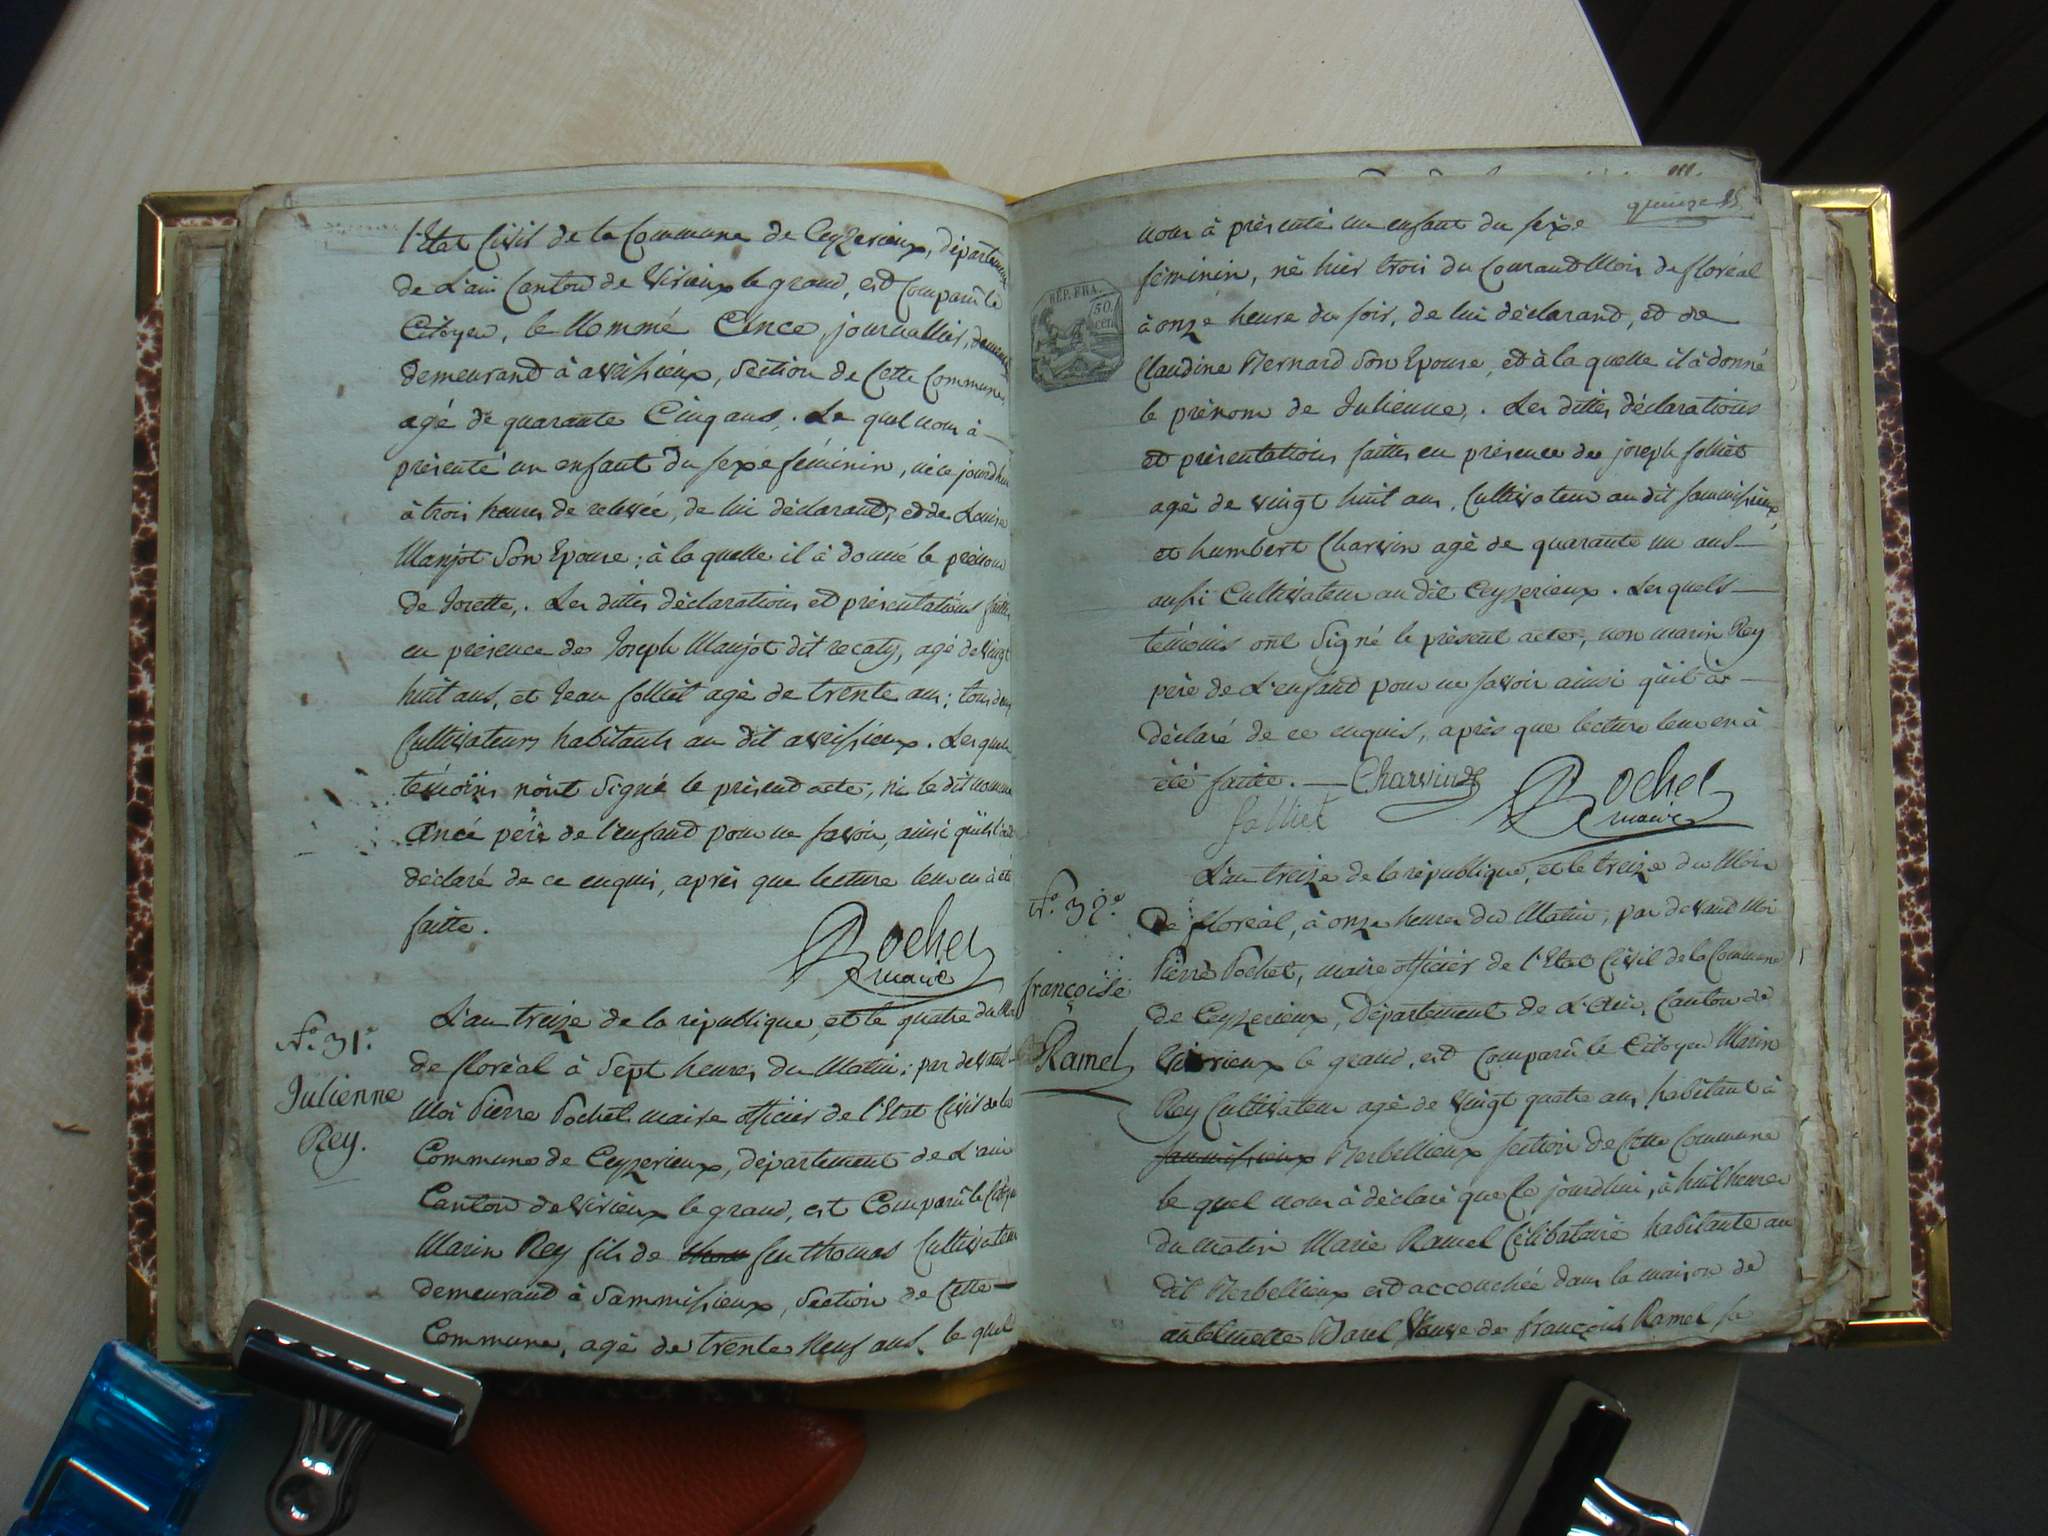 l'Etat Civil de la Commune de Ceyzerieux, département
de L'ain Canton de Virieux le grand, est Comparû le
Citoyen, le Nommé Cince, journallier,
demeurand à aveisieux, Section de Cette Commune,
agé de quarante Cinq ans,. Le quel nous à
présenté un enfant du sexe féminin, né ce jourd'hui
à trois heures de relevée, de lui déclarand, et de Louise
Manjot Son Epouse; à la quelle il à donné le prénom
de Josette,. Les dittes déclarations et présentations faittes
en présence de Joseph Manjot dit recaty, agé de vingt
huit ans, et Jean folliet agé de trente ans; tous deux
Cultivateurs habitants au dit aveisieux. Lesquels
témoins n'ont Signé le présend acte, ni le dit nommé
Cincé père de l'enfand pour ne savoir, ainsi qu'ils l'ont
déclaré de ce enquis, après que lecture leur en à été
faitte.
Pochet
maire
N.° 31.e
Julienne
Rey.
L'an treize de la république, et le quatre du Mois
de floréal à Sept heures du Matin; par devant
Moi Pierre Pochet maire officier de l'Etat Civil de la
Commune de Ceyzerieux, département de L'ain
Canton de Virieux le grand, est Comparû le Citoyen
Marin Rey fils de feu thomas Cultivateur
demeurand à Sammisieux, Section de Cette
Commune, agé de trente Neuf ans. le quel
quinze 15
nous à présenté un enfant du sexe
féminin, né hier trois du Courand Mois de floréal
à onze heure du soir, de lui déclarand, et de
Claudine Bernard Son Epouse, et à la quelle il à donné
le prénom de Julienne,. Les dittes déclarations
et présentations faittes en présence de joseph folliet
agé de vingt huit ans, Cultivateur au dit sammisieux,
et humbert Charvin agé de quarante un ans
aussi Cultivateur au dit Ceyzerieux. Lesquels
témoins ont Signé le présent acte, non marin Rey
père de L'enfand pour ne savoir ainsi qu'il à
déclaré de ce enquis, après que lecture leur en à
été faitte. Charvin
folliet
Pochet
maire
RÉP. FRA.
50.
cen
N.° 32.e
françoise
Ramel
L'an treize de la république, et le treize du Mois
de floréal, à onze heures du Matin; par devand Moi
Pierre Pochet, maire officier de l'Etat Civil de la Commune
de Ceyzerieux, Département de L'Ain, Canton de
Virieux le grand, est Comparû le Citoyen Marin
Rey Cultivateur agé de vingt quatre ans habitant à
sammisieux Berbellieux section de Cette Commune
le quel nous à déclaré que Ce jourdhui, à huit heures
du matin Marie Ramel Célibataire habitante au
dit Berbellieux est accouchée dans la maison de
antelmette Borel Veuve de françois Ramel sa